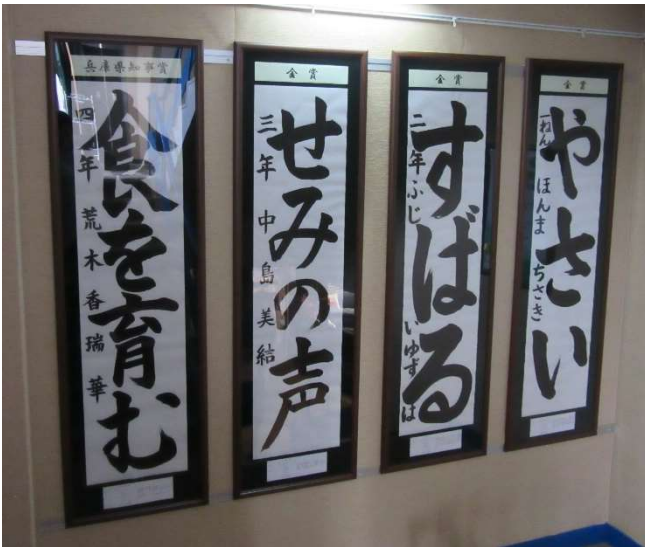 兵庫県知事賞
食を育む
四年 荒木香瑞華
金賞
せみの声
三年 中島美結
金賞
すばる
二年ふじいゆずは
金賞
やさい
一ねん ほんま ちさき